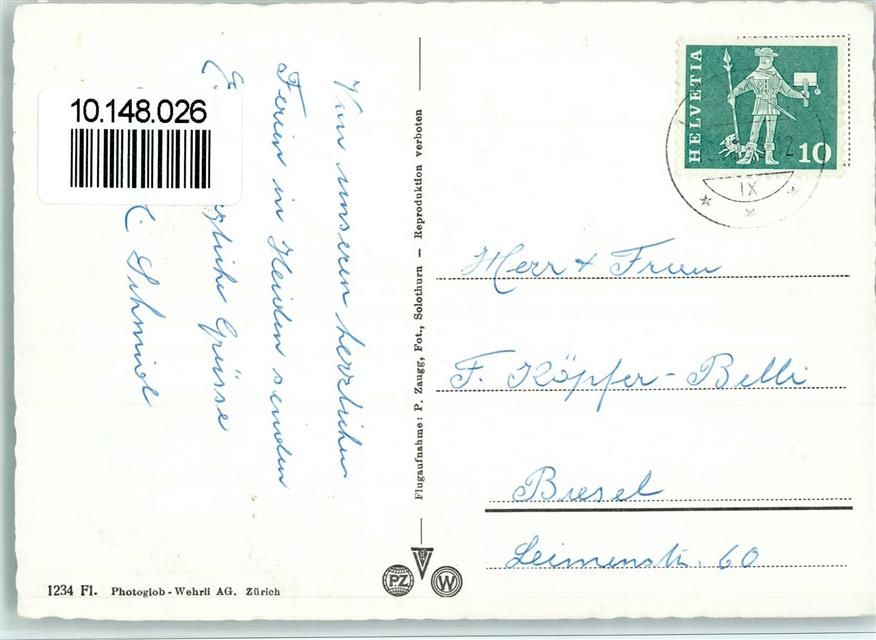 Von unseren herrlichen
Ferien in Heiden senden
herzliche Grüsse
Schmid
10.148.026
Flugaufnahme: P. Zaugg, Fot., Solothurn — Reproduktion verboten
HELVETIA
10
12
IX
Herr & Frau
F. Köpfer-Belli
Basel
Leimenstr. 60
PZ
W
1234 Fl. Photoglob-Wehrli AG. Zürich